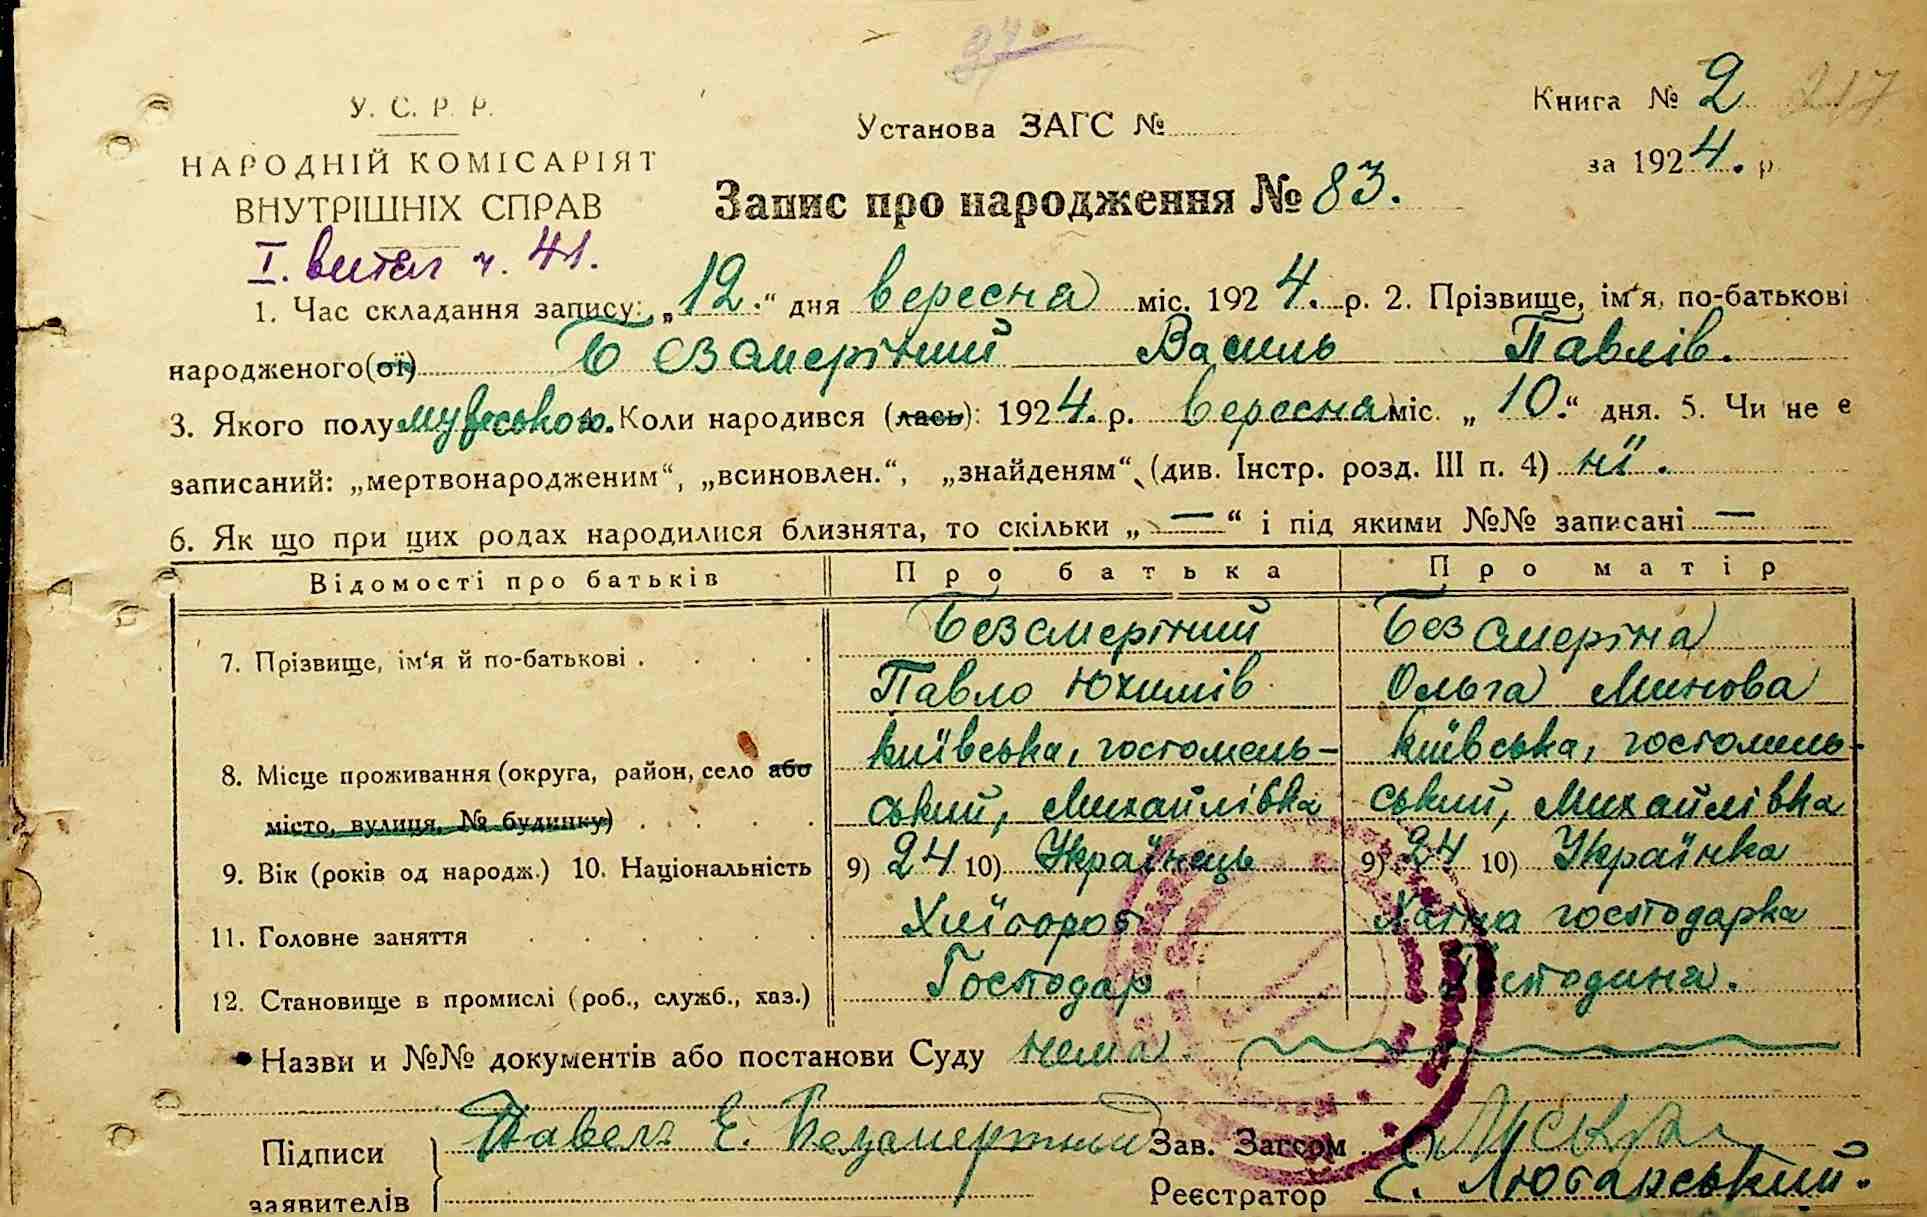 24
Книга № 2 217
У. С. Р. Р.
Установа ЗАГС №
за 1924. р.
НАРОДНІЙ КОМІСАРІЯТ
ВНУТРІШНІХ СПРАВ
Запис про народження № 83.
І. витяг ч. 41.
1. Час складання запису: „12.“ дня вересня міс. 1924. р. 2. Прізвище, ім‘я, по-батькові
народженого(ої) Безсмертний Василь Павлів.
3. Якого полу мужеського. 4. Коли народився (лась): 1924. р. вересня міс. „10.“ дня. 5. Чи не є
записаний: „мертвонародженим“, „всиновлен.“, „знайденям“ (див. Інстр. розд. III п. 4) ні.
6. Як що при цих родах народилися близнята, то скільки „—“ і під якими №№ записані —
Відомості про батьків Про батька Про матір
7. Прізвище, ім‘я й по-батькові . Безсмертний Безсмертна
Павло Юхимів Ольга Минова
8. Місце проживання (округа, район, село або Київська, гостомель- Київська, гостомель-
місто, вулиця, № будинку) ський, Михайлівка ський, Михайлівка
9. Вік (років од народж.) 10. Національність 9) 24 10) Українець 9) 24 10) Українка
11. Головне заняття Хлібороб Хатня господарка
12. Становище в промислі (роб., служб., хаз.) Господар Господиня.
Назви и №№ документів або постанови Суду нема
Підписи Павелъ Е. Безсмертный Зав. Загсом
заявителів Реєстратор Є. Лютарський.